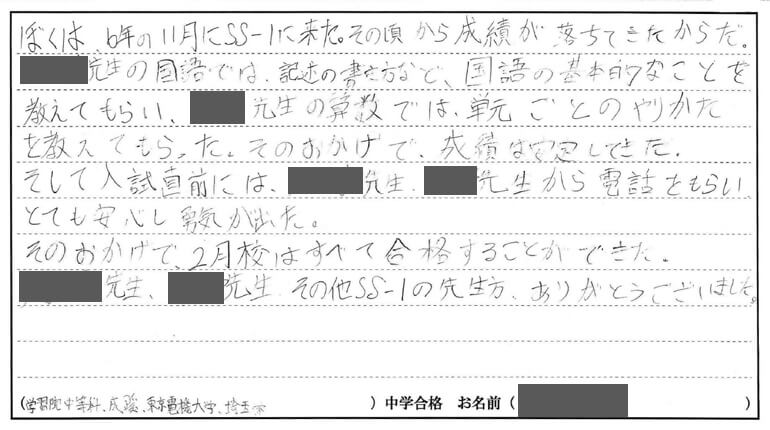 ぼくは、6年の11月にSS-1に来た。その頃から成績が落ちてきたからだ。
先生の国語では、記述の書き方など、国語の基本的なことを
教えてもらい、先生の算数では、単元ごとのやりかた
を教えてもらった。そのおかげで、成績は安定してきた。
そして入試直前には、先生、先生から電話をもらい、
とても安心し勇気が出た。
そのおかげで、2月校はすべて合格することができた。
先生、先生、その他SS-1の先生方、ありがとうございました。
(学習院中等科、成蹊、東京電機大学、埼玉栄)中学合格 お名前()